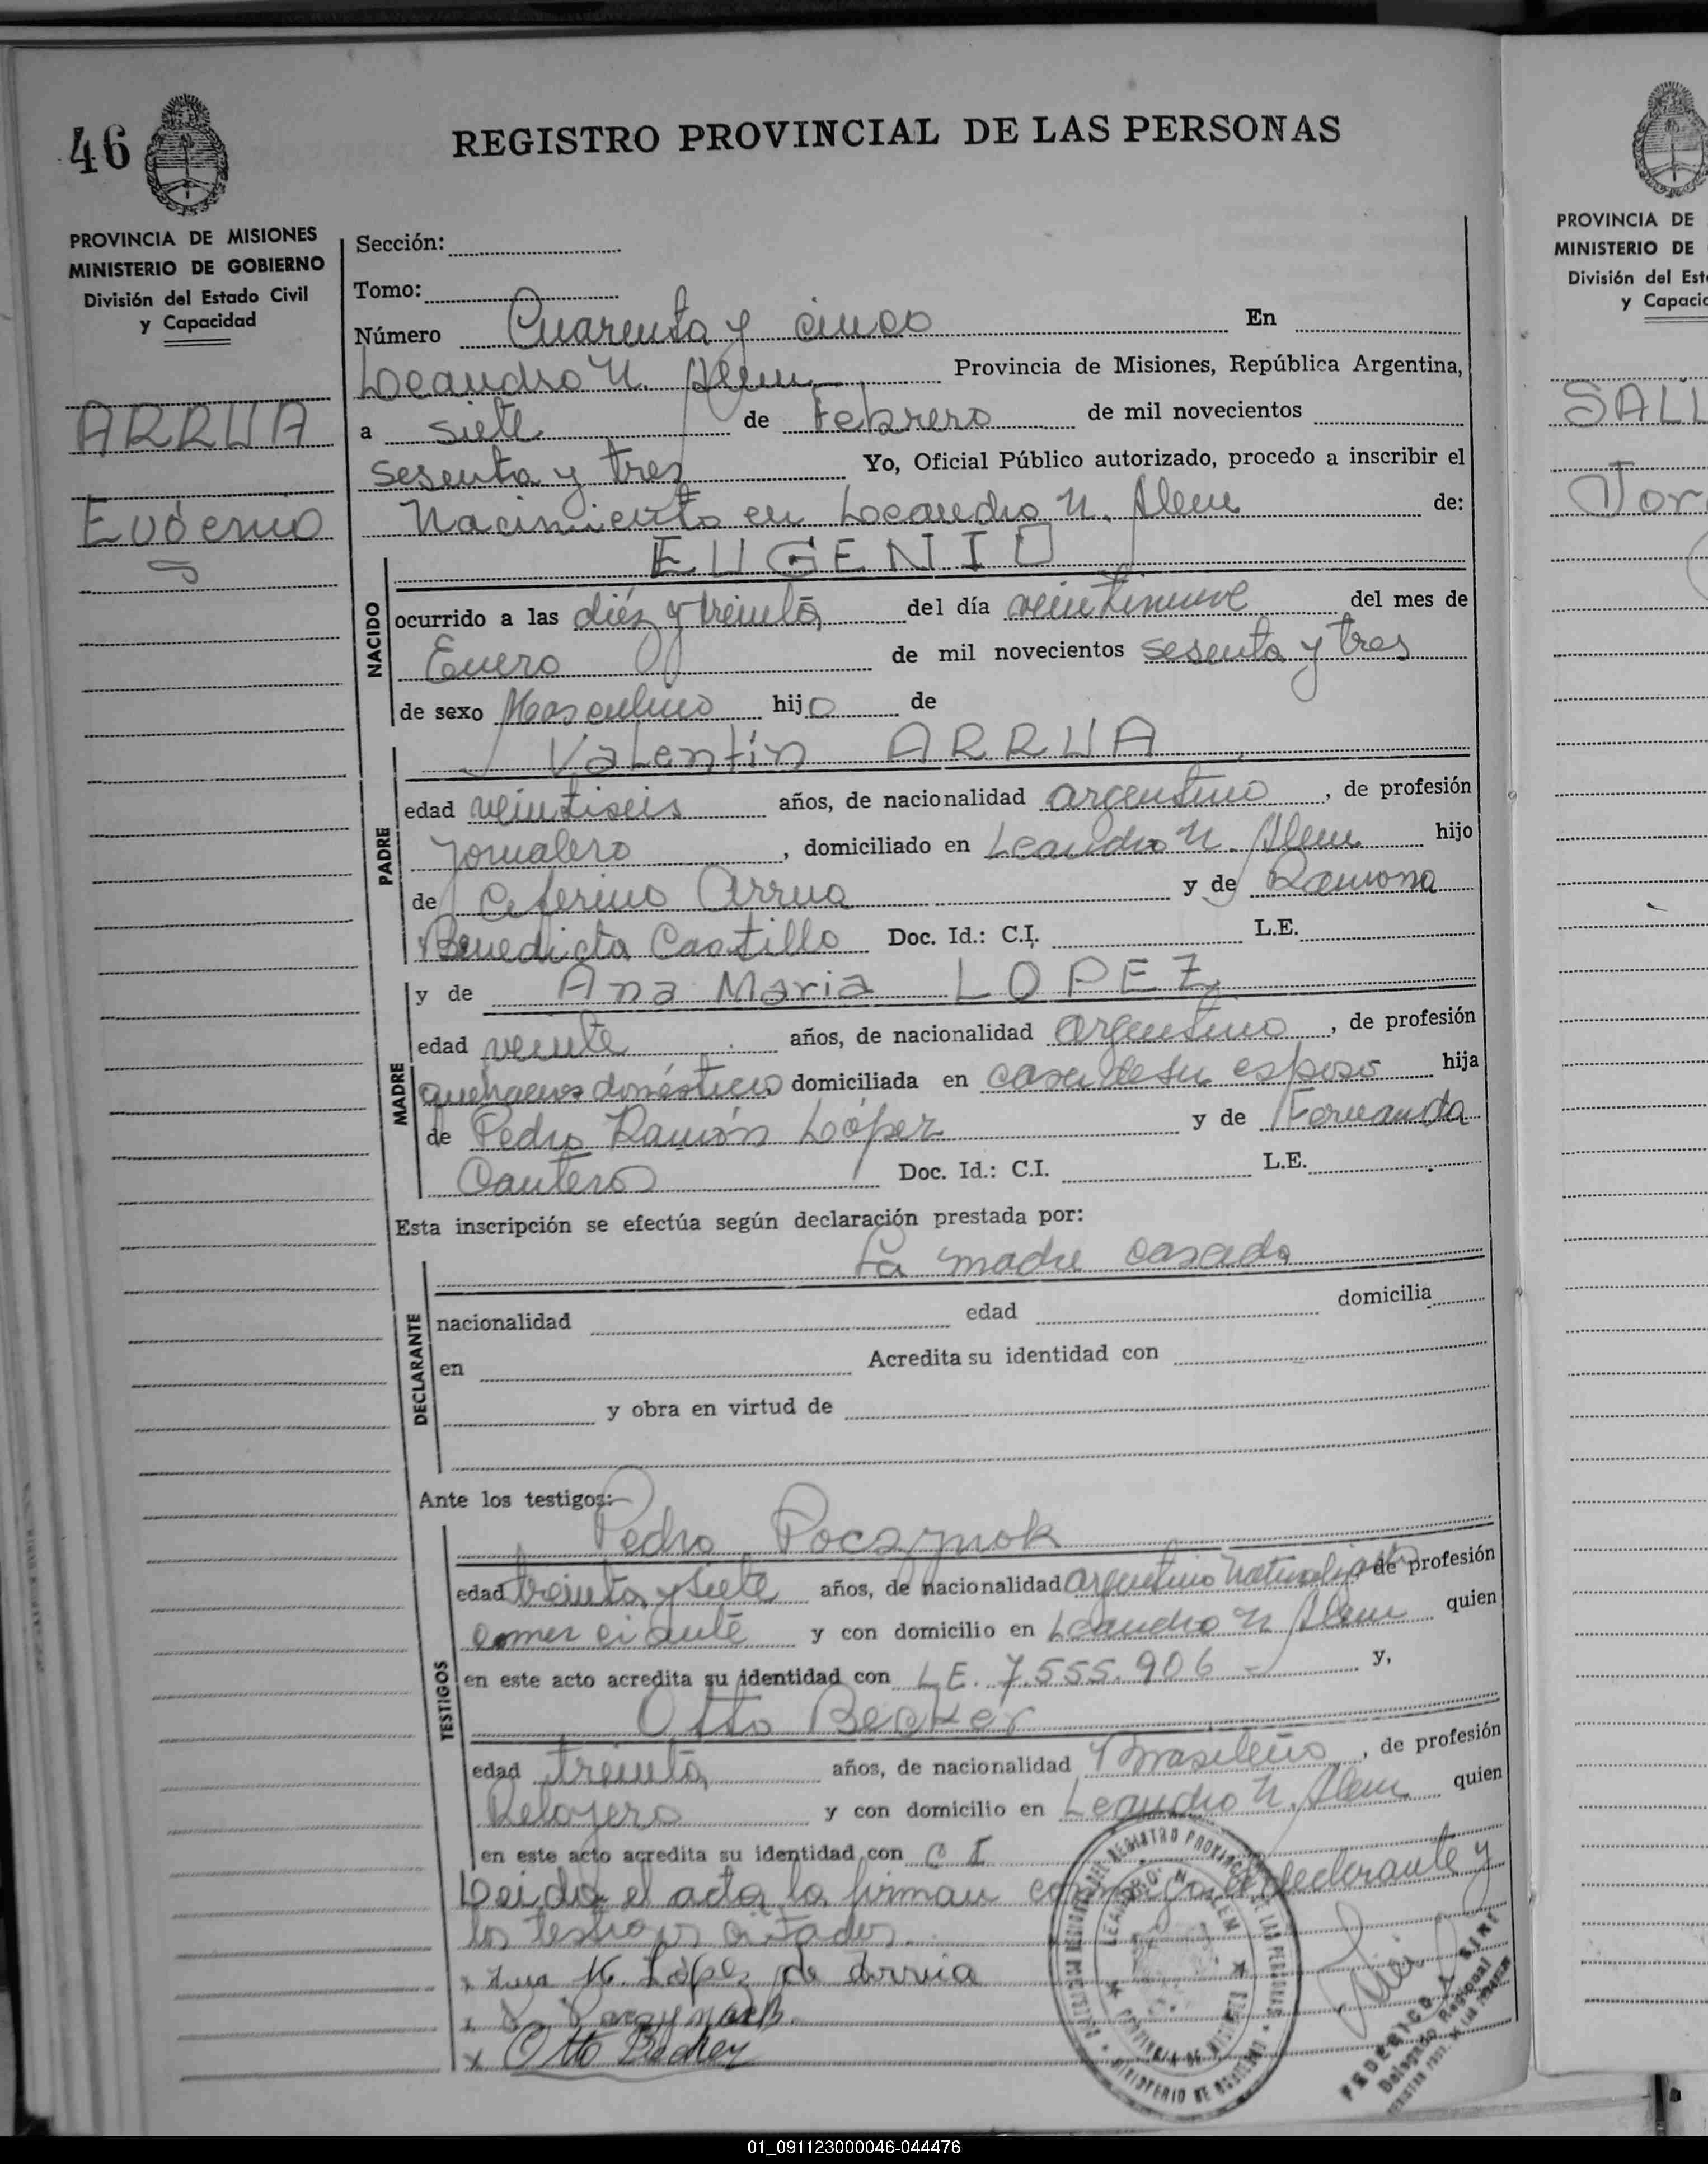 46
REGISTRO PROVINCIAL DE LAS PERSONAS
PROVINCIA DE MISIONES
MINISTERIO DE GOBIERNO
División del Estado Civil
y Capacidad
ARRUA
Eugenio
Sección:
Tomo:
Número Cuarenta y cinco En
Leandro N. Alem, Provincia de Misiones, República Argentina,
a siete de Febrero de mil novecientos
sesenta y tres Yo, Oficial Público autorizado, procedo a inscribir el
Nacimiento en Leandro N. Alem de:
EUGENIO
NACIDO
ocurrido a las diéz y treinta del día veintinueve del mes de
Enero de mil novecientos sesenta y tres
de sexo Masculino hijo de
Valentín ARRUA
PADRE
edad veintiseis años, de nacionalidad argentino, de profesión
Jornalero, domiciliado en Leandro N. Alem hijo
de Ceferino Arrua y de Ramona
Benedicta Castillo Doc. Id.: C.I. L.E.
y de Ana Maria LOPEZ
MADRE
edad veinte años, de nacionalidad argentina, de profesión
quehaceres domésticos domiciliada en casa de su esposo hija
de Pedro Ramón López y de Fernanda
Cantero Doc. Id.: C.I. L.E.
Esta inscripción se efectúa según declaración prestada por:
La madre casada
DECLARANTE
nacionalidad edad domicilia
en Acredita su identidad con
y obra en virtud de
Ante los testigos:
Pedro Pocaznok
TESTIGOS
edad treinta y siete años, de nacionalidad argentino de profesión
comerciante y con domicilio en Leandro N Alem quien
en este acto acredita su identidad con L.E. 7.555.906 - y,
Otto Becker
edad treinta años, de nacionalidad Brasileño, de profesión
Relojero y con domicilio en Leandro N. Alem quien
en este acto acredita su identidad con C I
Leida el acta la firman conmigo declarante y
los testigos citados.
x Ana M. López de Arrua
x P.
x Otto Becker
LEANDRO N. ALEM
PROVINCIA DE MISIONES
MINISTERIO DE GOBIERNO
FEDERICO A.
Delegado Regional
PROVINCIA DE
MINISTERIO DE
División del Est
y Capacid
SALI
Jor
01_091123000046-044476